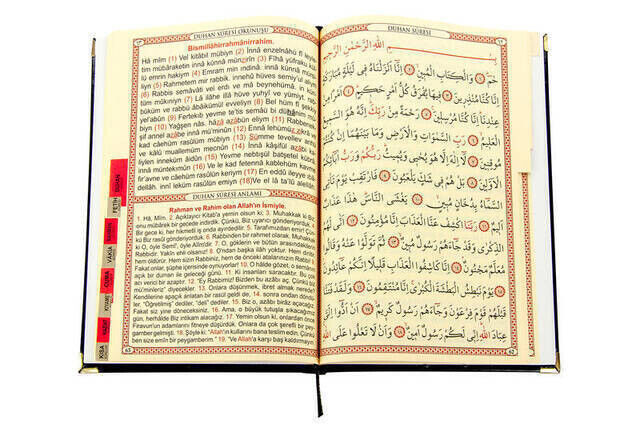 DUHAN SÛRESİ OKUNUŞU
Bismillâhirrahmânirrahîm.
Hâ mîm (1) Vel kitâbil mübiyn (2) İnnâ enzelnâhü fî leyle-
tim mübâraketin innâ künnâ münzirîn (3) Fîhâ yüfraku kül-
lü emrin hakiym (4) Emram min ındinâ. innâ künnâ mürsi-
liyn (5) Rahmetem mir rabbik. innehû hüves semiy'ul aliym
(6) Rabbis semâvâti vel erdı ve mâ beynehümâ. in kün-
tüm mûkıniyn (7) Lâ ilâhe illâ hüve yuhyî ve yümiyt. rab-
büküm ve rabbü âbâikümül evveliyn (8) Bel hüm fî şekkiy
yel'abûn (9) Fertekıb yevme te'tis semâü bi dühânim mü-
biyn (10) Yağşen nâs. hâzâ azâbün eliym (11) Rabbenek-
şif annel azâbe innâ mü'minûn (12) Ennâ lehümüz zikrâ ve
kad câehüm rasûlüm mübiyn (13) Sümme tevellev anhü
ve kâlû muallemüm mecnûn (14) İnnâ kâşifül azâbi ka-
liylen inneküm âidûn (15) Yevme nebtışül batşetel kübrâ
innâ müntekımûn (16) Ve le kad fetennâ kablehüm kavme
fir'avne ve câehüm rasûlün keriym (17) En eddû ileyye ıbâ-
dellâh. innî leküm rasûlün emiyn (18) Ve el lâ ta'lû alellâh
DUHAN SÛRESİ ANLAMI
Rahman ve Rahim olan Allah'ın İsmiyle.
1. Hâ, Mîm. 2. Açıklayıcı Kitab'a yemin olsun ki; 3. Muhakkak ki Biz
onu mübarek bir gecede indirdik. Çünkü, Biz uyarıcı gönderiyorduk. 4.
Bir gece ki, her hikmetli iş onda ayırdedilir. 5. Tarafımızdan emir! Çün-
kü Biz rasûl gönderiyorduk. 6. Rabbinden bir rahmet olarak. Muhakkak
ki O, öyle Semi', öyle Alîm'dir. 7. O, göklerin ve bütün arasındakilerin
Rabbidir. Yakîn ehli olsanız! 8. O'ndan başka ilâh yoktur. Hem diriltir,
hem öldürür. Hem sizin Rabbiniz, hem de önceki atalarınızın Rabbi! 9.
Fakat onlar, şüphe içerisinde oynuyorlar! 10. O hâlde gözet, o semanın
açık bir duman ile geleceği günü. 11. Ki insanları saracaktır. Bu pek
acı verici bir azaptır. 12. "Ey Rabbimiz! Bizden bu azâbı aç. Çünkü biz
mü'minleriz" diyecekler. 13. Onlara düşünmek, ibret almak nerede?
Kendilerine apaçık anlatan bir rasûl geldi de, 14. sonra ondan döndü-
ler, "Öğretilmiş" dediler, "deli" dediler. 15. Biz o, azâbı biraz açacağız.
Fakat siz yine döneceksiniz. 16. Ama, o büyük tutuşla sıkacağımız
gün, herhalde intikam alacağız! 17. Yemin olsun ki, onlardan önce
Firavun'un adamlarını fitneye düşürdük. Onlara da çok şerefli bir pey-
gamber gelmişti. 18. Şöyle ki: "Allah'ın kullarını bana teslim edin. Çünkü
ben size emin bir peygamberim." 19. "Ve Allah'a karşı baş kaldırmayın
63
FETİH
DUHAN
VAKIA
RAHMAN
CUMA
KIYAMET
KISA
DUHAN SÛRESİ
بِسْــــــمِ اللهِ الرَّحْمٰنِ الرَّحِيمِ
حٰمٓ ﴿١﴾ وَالْكِتَابِ الْمُبِينِ ﴿٢﴾ اِنَّٓا اَنْزَلْنَاهُ فِي لَيْلَةٍ مُبَارَكَةٍ
اِنَّا كُنَّا مُنْذِرِينَ ﴿٣﴾ فِيهَا يُفْرَقُ كُلُّ اَمْرٍ حَكِيمٍ ﴿٤﴾ اَمْرًا مِنْ عِنْدِنَا
اِنَّا كُنَّا مُرْسِلِينَ ﴿٥﴾ رَحْمَةً مِنْ رَبِّكَ اِنَّهُ هُوَ السَّمِيعُ
الْعَلِيمُ ﴿٦﴾ رَبِّ السَّمٰوَاتِ وَالْاَرْضِ وَمَا بَيْنَهُمَا اِنْ كُنْتُمْ
مُوقِنِينَ ﴿٧﴾ لَٓا اِلٰهَ اِلَّا هُوَ يُحْيِي وَيُمِيتُ رَبُّكُمْ وَرَبُّ اٰبَٓائِكُمُ
الْاَوَّلِينَ ﴿٨﴾ بَلْ هُمْ فِي شَكٍّ يَلْعَبُونَ ﴿٩﴾ فَارْتَقِبْ يَوْمَ تَأْتِي
السَّمَٓاءُ بِدُخَانٍ مُبِينٍ ﴿١٠﴾ يَغْشَى النَّاسَ هٰذَا عَذَابٌ
اَلِيمٌ ﴿١١﴾ رَبَّنَا اكْشِفْ عَنَّا الْعَذَابَ اِنَّا مُؤْمِنُونَ ﴿١٢﴾ اَنّٰى لَهُمُ
الذِّكْرٰى وَقَدْ جَٓاءَهُمْ رَسُولٌ مُبِينٌ ﴿١٣﴾ ثُمَّ تَوَلَّوْا عَنْهُ وَقَالُوا
مُعَلَّمٌ مَجْنُونٌ ﴿١٤﴾ اِنَّا كَاشِفُوا الْعَذَابِ قَلِيلًا اِنَّكُمْ عَٓائِدُونَ ﴿١٥﴾
يَوْمَ نَبْطِشُ الْبَطْشَةَ الْكُبْرٰى اِنَّا مُنْتَقِمُونَ ﴿١٦﴾ وَلَقَدْ فَتَنَّا
قَبْلَهُمْ قَوْمَ فِرْعَوْنَ وَجَٓاءَهُمْ رَسُولٌ كَرِيمٌ ﴿١٧﴾ اَنْ اَدُّٓوا اِلَيَّ
عِبَادَ اللهِ اِنِّي لَكُمْ رَسُولٌ اَمِينٌ ﴿١٨﴾ وَاَنْ لَا تَعْلُوا عَلَى اللهِ
62